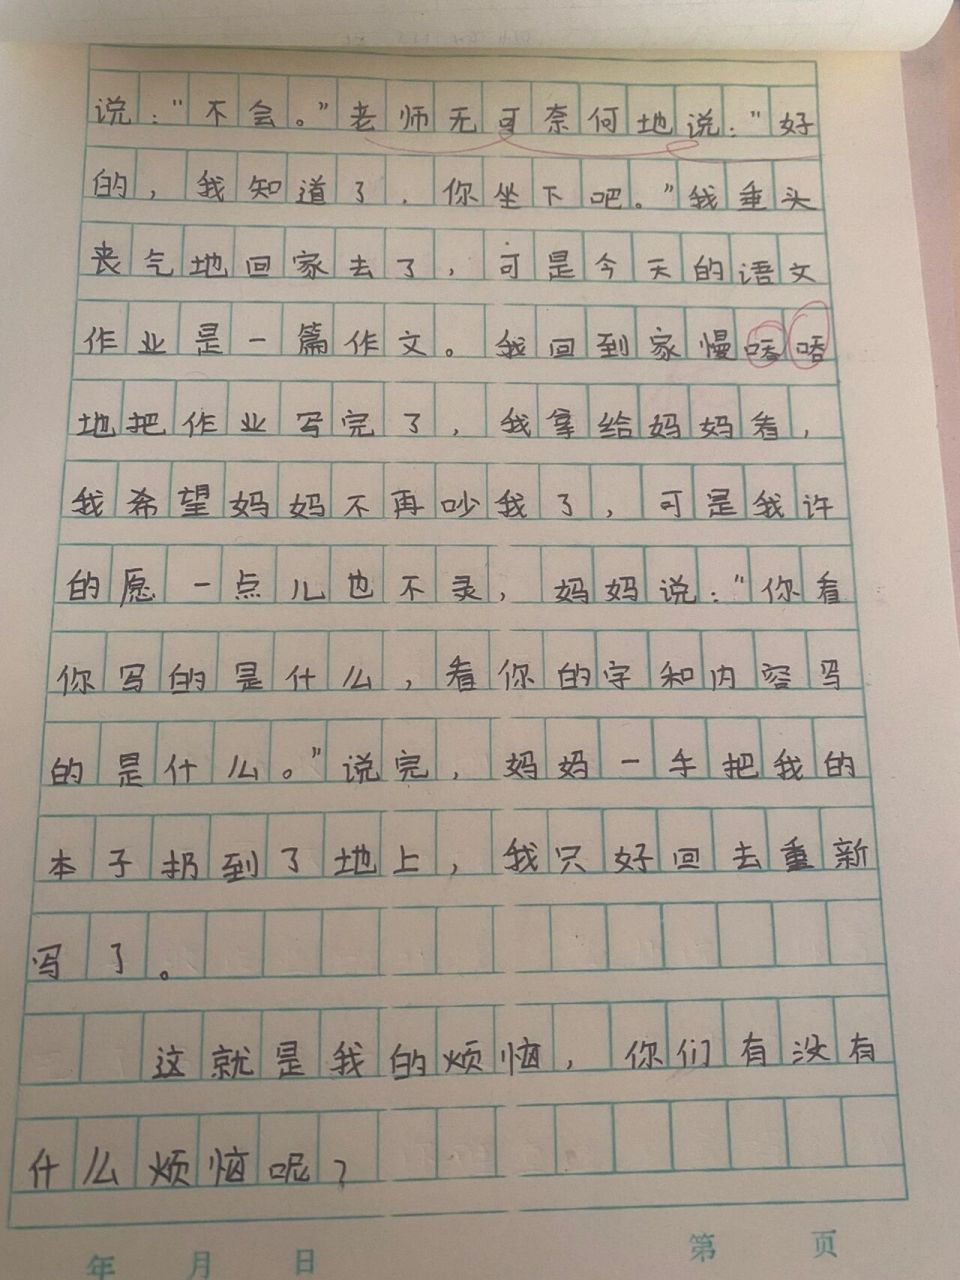 说："不会。"老师无可奈何地说："好
的，我知道了，你坐下吧。"我垂头
丧气地回家去了，可是今天的语文
作业是一篇作文。我回到家慢唔唔
地把作业写完了，我拿给妈妈看，
我希望妈妈不再吵我了，可是我许
的愿一点儿也不灵，妈妈说："你看
你写的是什么，看你的字和内容写
的是什么。"说完，妈妈一手把我的
本子扔到了地上，我只好回去重新
写了。
这就是我的烦恼，你们有没有
什么烦恼呢？
年 月 日 第 页